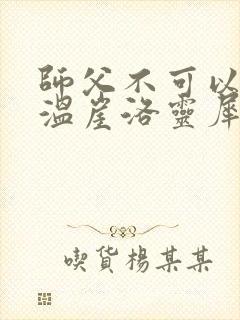 師父不可以
溫崖洛靈犀
喫貨楊某某